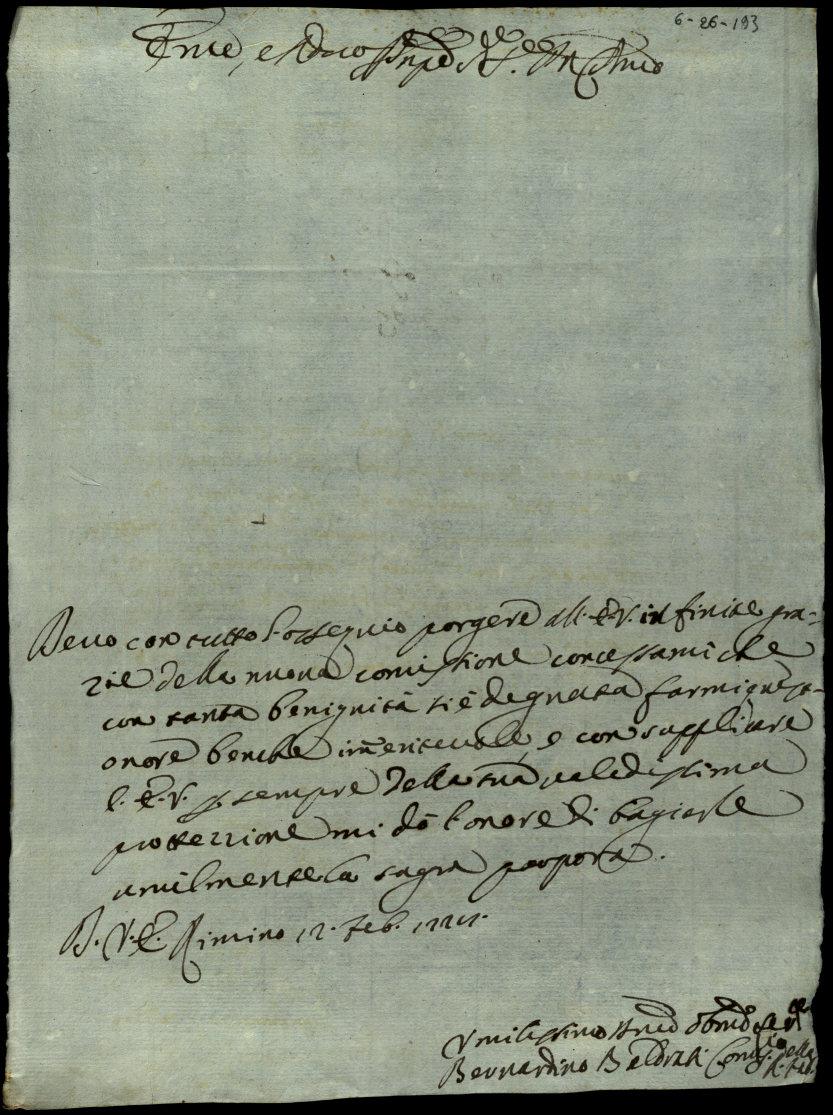 6-26-193
Devo con tutto l'ossequio porgere all'E.V. infinite gra=
zie della nuova comissione concessami che
con tanta benignità si è degnata farmi quest'
onore benche immeritevole e con supplicare
l'E.V. p. sempre della sua validissima
protezzione mi dò l'onore di bagiarle
umilmente la sagra porpora.
D. V. E. Rimino 12. Feb.
Umilissimo
Bernardino Baldrati della